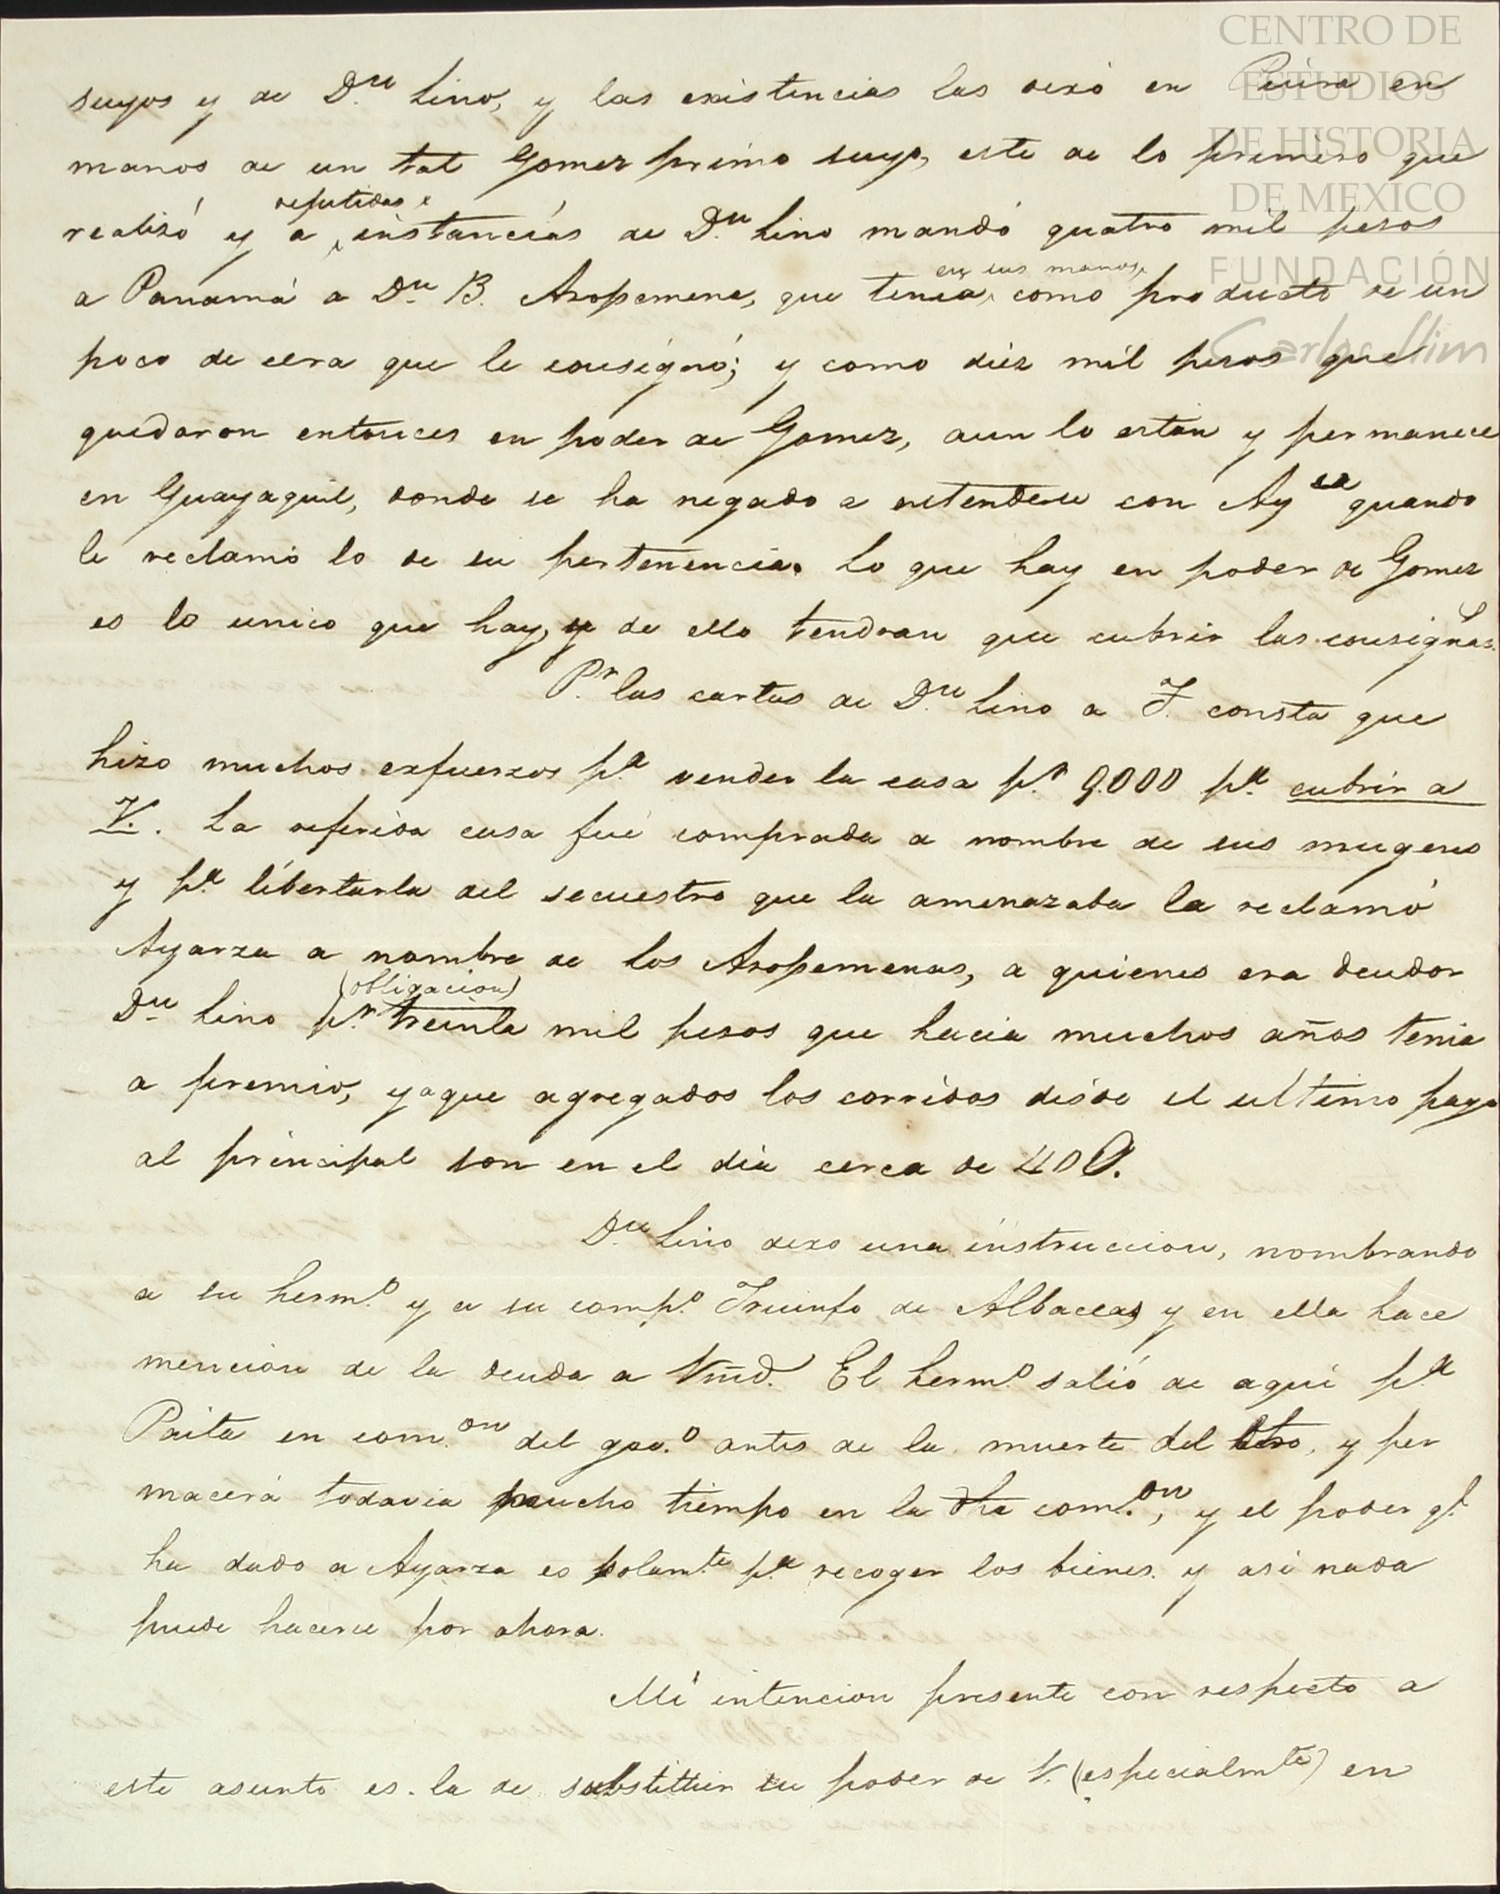 CENTRO DE
ESTUDIOS
DE HISTORIA
DE MEXICO
FUNDACIÓN
Carlos Slim
suyos y de Dn. Lino, y las existencias las dexó en Piura en
manos de un tal Gomez primo suyo, este de lo primero que
realizó y a repetidas instancías de Dn. Lino mandó quatro mil pesos
a Panamá a Dn. B. Arosemena, que tenia en sus manos, como producto de un
poco de cera que le consignó; y como diez mil pesos que
quedaron entonces en poder de Gomez, aun lo están y permanece
en Guayaquil, donde se ha negado a entenderse con Ayza quando
le reclamó lo de su pertenencia. Lo que hay en poder de Gomez
es lo unico que hay, y de ello tendran que cubrir las consignas.
Pr. las cartas de Dn. Lino a F. consta que
hizo muchos exfuerzos pa. vender la casa pr. 9.000 pa. cubrir a
V. La referida casa fué comprada a nombre de sus mugeres
y pa. libertarla del secuestro que la amenazaba la reclamó
Ayarza a nombre de los Arosemenas, a quienes era deudor
Dn. Lino pr. (obligacion) treinta mil pesos que hacia muchos años tenia
a premio, yaque agregados los corridos désde el ultimo pago
al principal son en el dia cerca de 40
Dn. Lino dexo una instruccion, nombrando
a su hermo. y a su compo. Triunfo de Albaceas y en ella hace
mencion de la deuda a Vmd. El hermo. salió de aqui pa.
Paita en com.on del gov.o antes de la muerte del otro, y per
macerá todavia mucho tiempo en la dha com.on, y el poder q.
ha dado a Ayarza es solamte. pa. recoger los bienes. y asi nada
puede hacerse por ahora.
Mi intencion presente con respecto a
este asunto es la de substituir su poder de V. (especialmte.) en